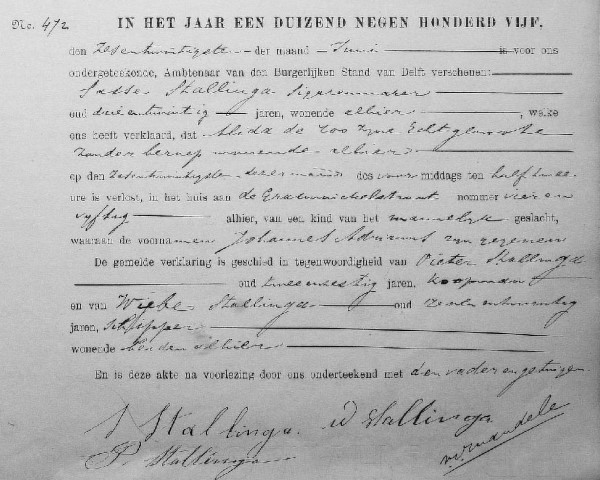 No. 472
IN HET JAAR EEN DUIZEND NEGEN HONDERD VIJF,
den Zesentwintigste der maand Juni is voor ons
ondergeteekende, Ambtenaar van den Burgerlijken Stand van Delft verschenen:
Sasse Stallinga Sigarenmaker
oud drieentwintig jaren, wonende alhier, welke
ons heeft verklaard, dat Alida de Echtgenoote
Zonder beroep wonende alhier
op den Zesentwintigste dezer maand des voor middags ten half twee
ure is verlost, in het huis aan de Graswinckelstraat nommer vier en
vyftig alhier, van een kind van het mannelyk geslacht,
waaraan de voornamen Johannes Adrianus zyn gegeven
De gemelde verklaring is geschied in tegenwoordigheid van Pieter Stallinga
oud tweeenzestig jaren, Koopman
en van Wiebe Stallinga oud Zevenentwintig
jaren, Schipper
wonende beiden alhier
En is deze akte na voorlezing door ons onderteekend met den vader en getuigen
S Stallinga. W Stallinga
P. Stallinga